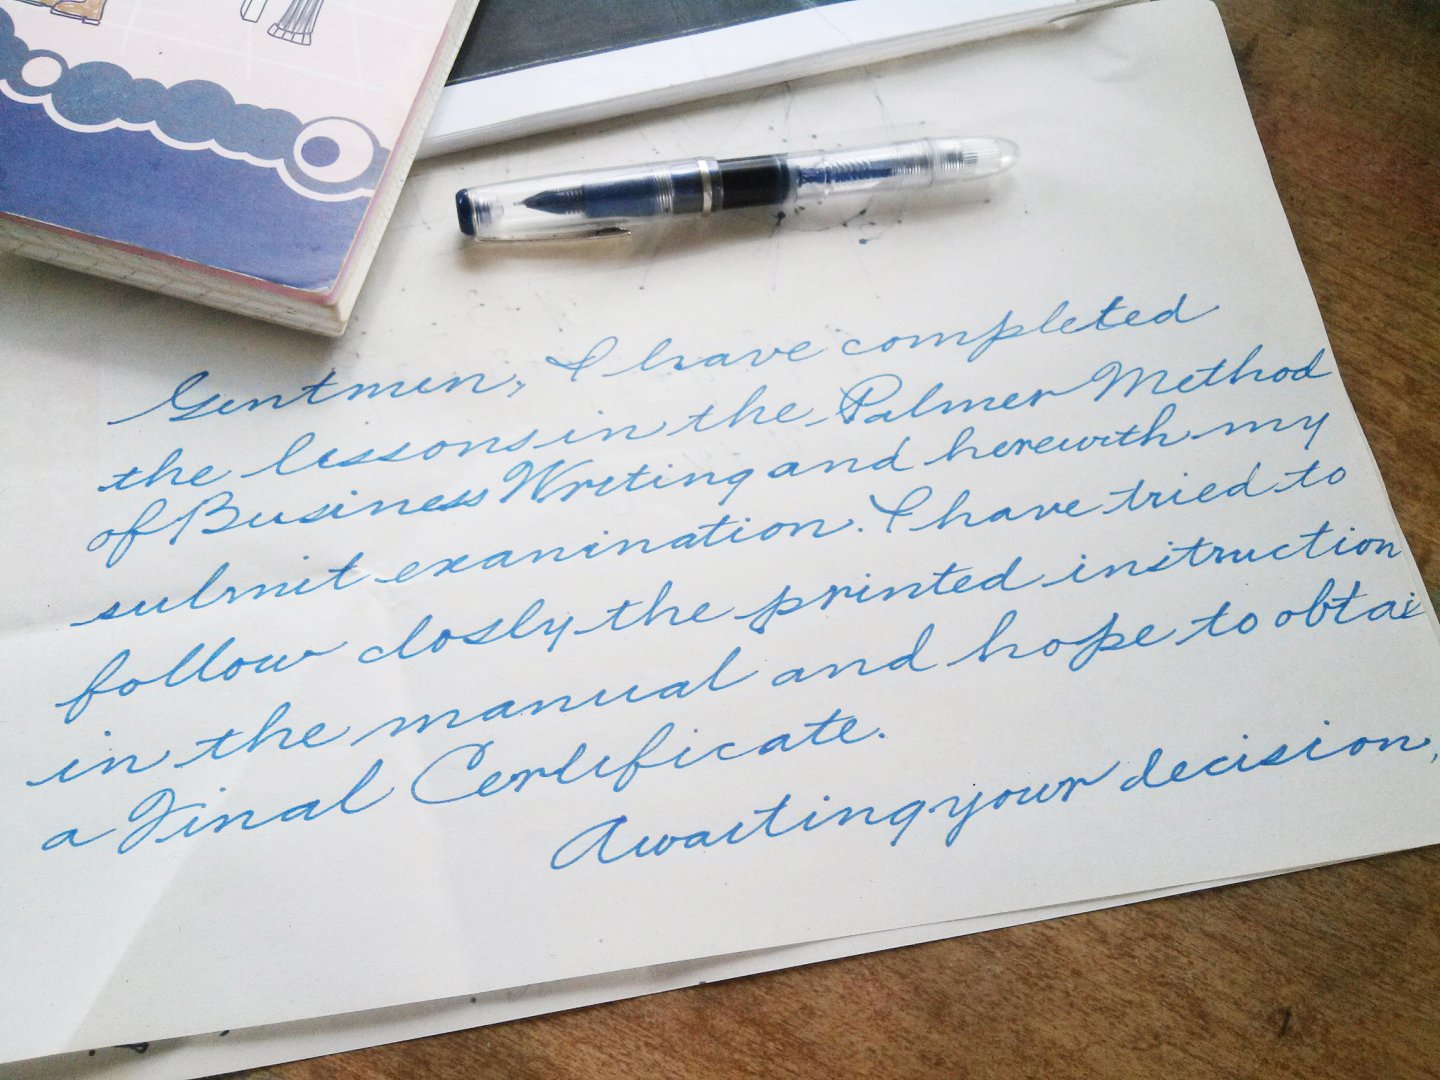 Gentmen, I have completed
the lessons in the Palmer Method
of Business Writing and herewith my
submit examination. I have tried to
follow closly the printed instruction
in the manual and hope to obtai
a Final Certificate.
Awaiting your decision,